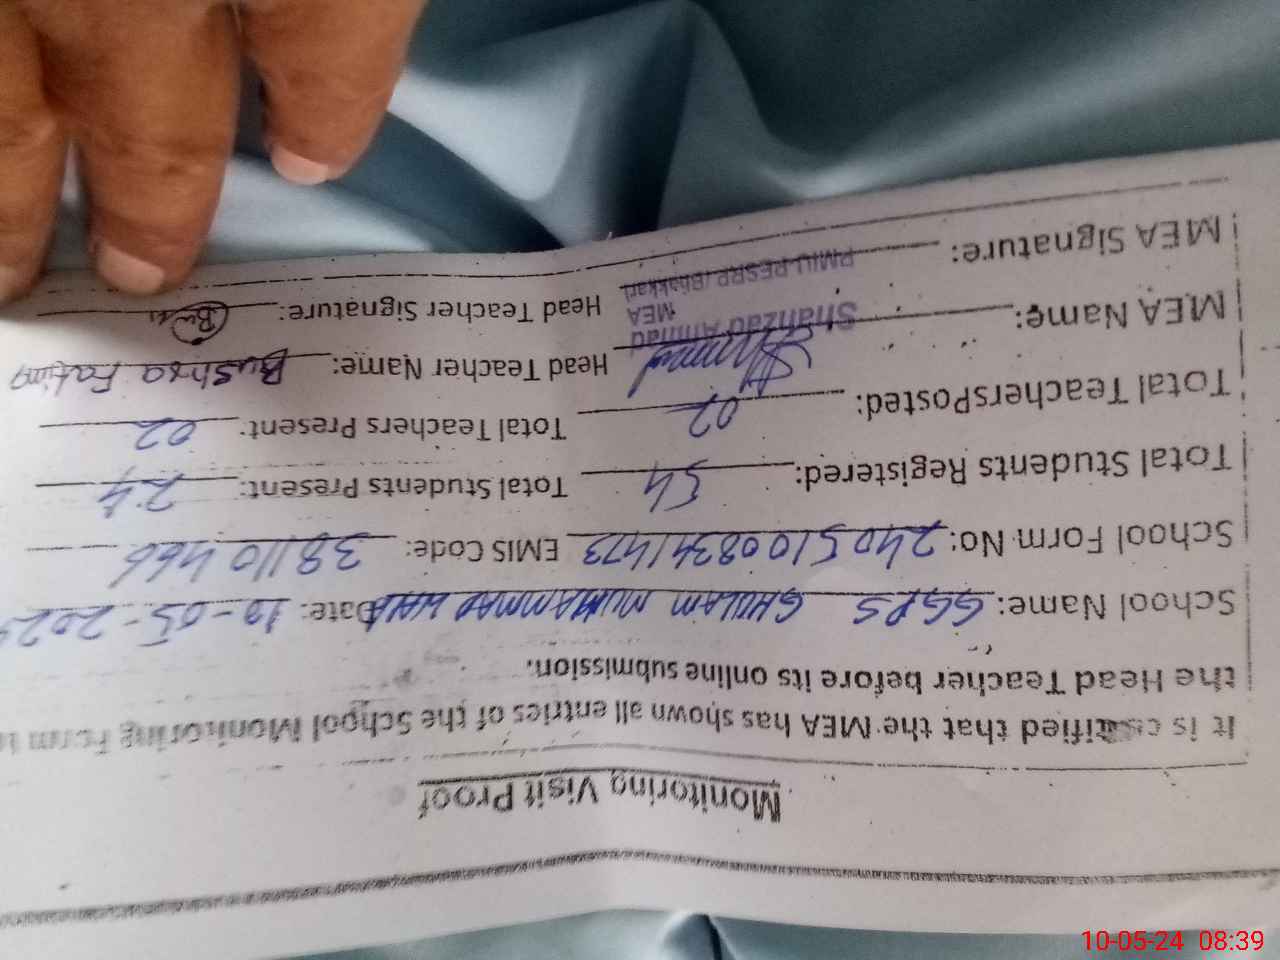 Monitoring Visit Proof
It is certified that the MEA has shown all entries of the School Monitoring Form
the Head Teacher before its online submission.
School Name: GGPS GHULAM MUHAMMAD WALA Date: 10-05-202
School Form No: 24051008341473 EMIS Code: 38110466
Total Students Registered: 54 Total Students Present: 24
Total TeachersPosted: 02 Total Teachers Present: 02
MEA Name: Shahzad Ahmad Head Teacher Name: Bushra Fatima
MEA
MEA Signature: PMIU-PESRP (Bhakkar) Head Teacher Signature:
10-05-24 08:39